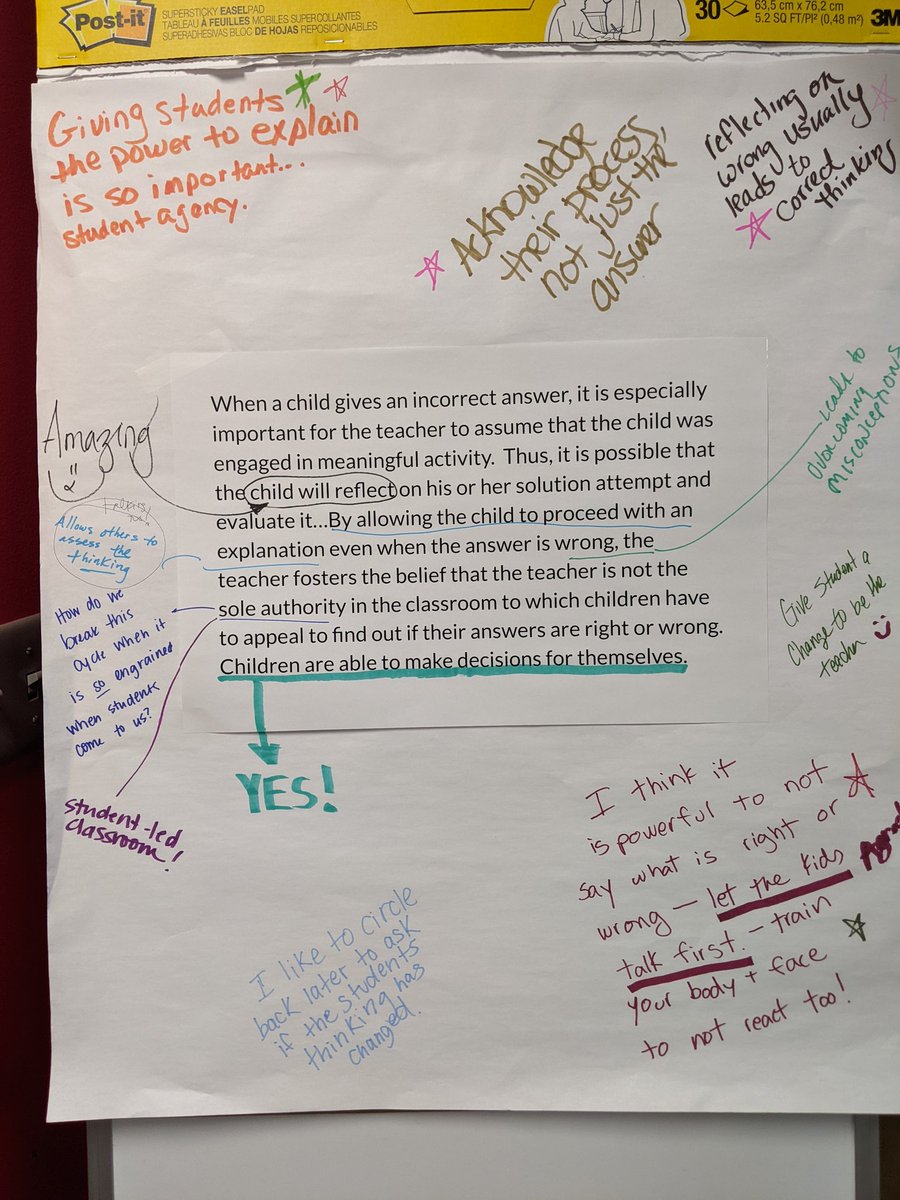 Post-it
SUPERSTICKY EASELPAD
TABLEAU À FEUILLES MOBILES SUPER COLLANTES
SUPERADHESIVAS BLOC DE HOJAS REPOSICIONABLES
30
63,5 cm x 76,2 cm
5.2 SQ FT/PI² (0,48 m²)
3M
Giving students
the power to explain
is so important...
student agency.
Acknowledge
their process,
not just the
answer
reflecting on
wrong usually
leads to
correct
thinking
When a child gives an incorrect answer, it is especially
important for the teacher to assume that the child was
engaged in meaningful activity. Thus, it is possible that
the child will reflect on his or her solution attempt and
evaluate it...By allowing the child to proceed with an
explanation even when the answer is wrong, the
teacher fosters the belief that the teacher is not the
sole authority in the classroom to which children have
to appeal to find out if their answers are right or wrong.
Children are able to make decisions for themselves.
Amazing
Allows others to
assess the
thinking
How do we
break this
cycle when it
is so engrained
when students
come to us?
student-led
classroom!
YES!
leads to
overcoming
misconceptions
Give student a
Change to be the
teacher
I think it
is powerful to not
say what is right or
wrong – let the kids
talk first. – train
your body + face
to not react too!
I like to circle
back later to ask
if the students
thinking has
changed.